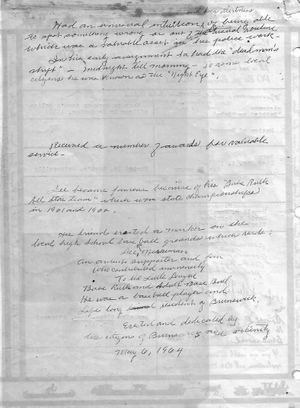 Had an unusual intuition of being able
to spot something wrong or out of the usual routine
which was a valuable asset in his police work.
In his early assignment he had the "dead man's
shift" - midnight till morning - so some local
citizens he was known as the "Night Eye".
Received a number of awards for valuable
service.
became famous because of his "Babe Ruth
All Star team" which won state championships
in 1961 and 1962.
His friends erected a marker on the
local high school base ball grounds which reads:
An ardent supporter and fan
Who contributed immensely
To the Little League
Babe Ruth and Adult Base Ball
He was a baseball player and
Life long resident of Brunswick.
Erected and dedicated by
the citizens of Brunswick and vicinity
May 6, 1964